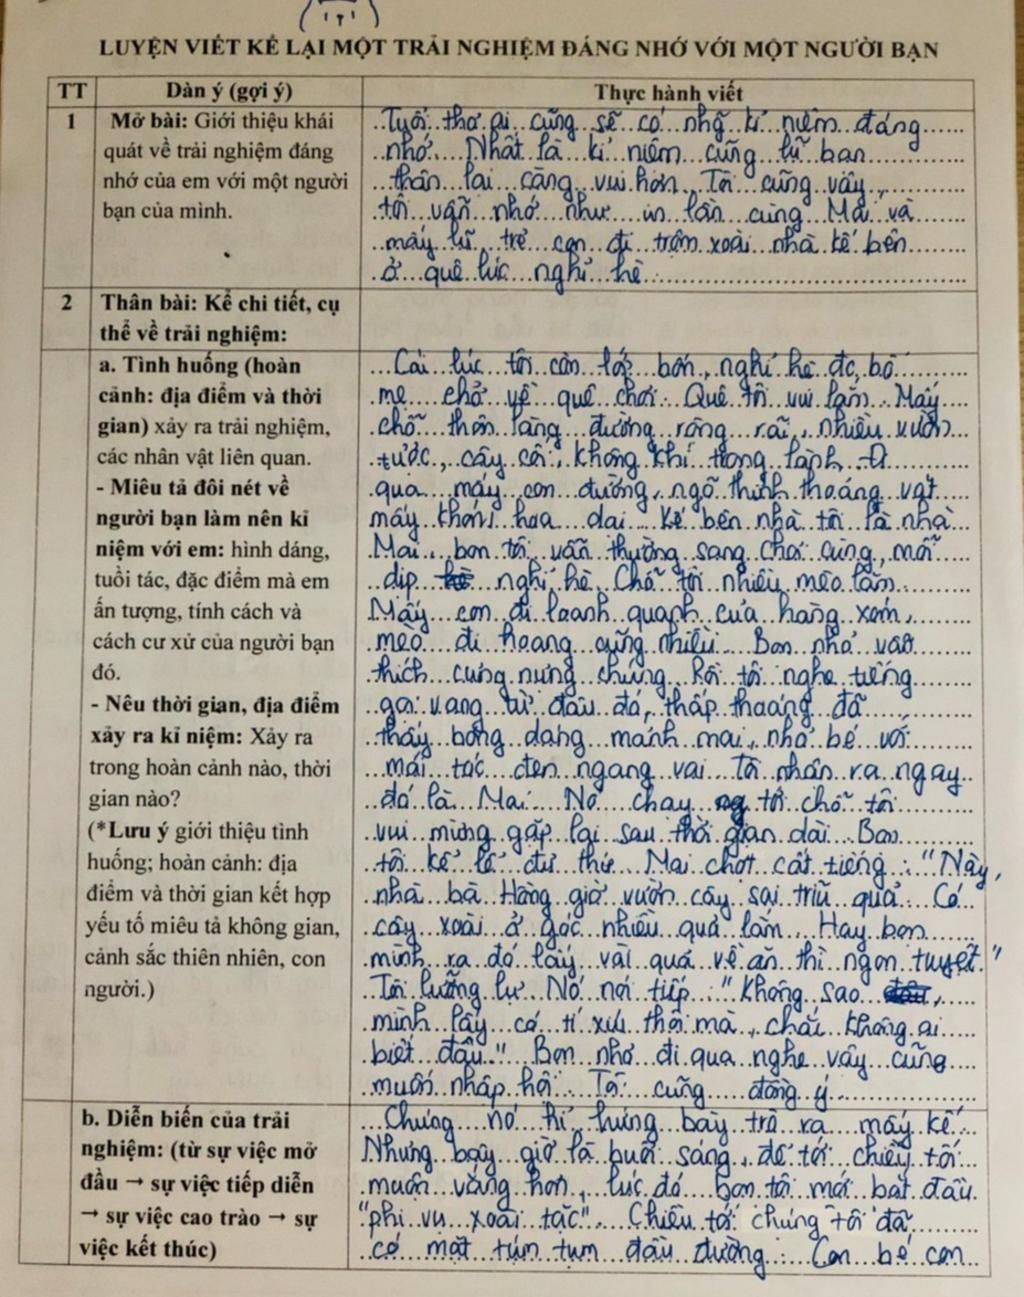 LUYỆN VIẾT KỂ LẠI MỘT TRẢI NGHIỆM ĐÁNG NHỚ VỚI MỘT NGƯỜI BẠN
TT
Dàn ý (gợi ý)
Thực hành viết
1
Mở bài: Giới thiệu khái
quát về trải nghiệm đáng
nhớ của em với một người
bạn của mình.
Tuổi thơ ai cũng sẽ có nhg kỉ niệm đáng
nhớ. Nhất là kỉ niệm cùng lũ bạn
thân lại càng vui hơn. Tôi cũng vậy,
tôi vẫn nhớ như in lần cùng Mai và
mấy lũ trẻ con đi trộm xoài nhà kế bên
ở quê lúc nghỉ hè.
2
Thân bài: Kể chi tiết, cụ
thể về trải nghiệm:
a. Tình huống (hoàn
cảnh: địa điểm và thời
gian) xảy ra trải nghiệm,
các nhân vật liên quan.
- Miêu tả đôi nét về
người bạn làm nên kỉ
niệm với em: hình dáng,
tuổi tác, đặc điểm mà em
ấn tượng, tính cách và
cách cư xử của người bạn
đó.
- Nêu thời gian, địa điểm
xảy ra kỉ niệm: Xảy ra
trong hoàn cảnh nào, thời
gian nào?
(*Lưu ý giới thiệu tình
huống; hoàn cảnh: địa
điểm và thời gian kết hợp
yếu tố miêu tả không gian,
cảnh sắc thiên nhiên, con
người.)
Cái lúc tôi còn lớp bốn, nghỉ hè đc bố
mẹ chở về quê chơi. Quê tôi vui lắm. Mấy
chỗ thôn làng đường rộng rãi, nhiều vườn
tược, cây cối, không khí trong lành. Đi
qua mấy con đường, ngõ thỉnh thoảng vạt
mấy khóm hoa dại. Kế bên nhà tôi là nhà
Mai, bọn tôi vẫn thường sang chơi cùng mỗi
dịp nghỉ hè. Chỗ tôi nhiều mèo lắm.
Mấy con đi loanh quanh của hàng xóm,
mèo đi hoang cũng nhiều. Bọn nhỏ vẫn
thích cưng nựng chúng. Rồi tôi nghe tiếng
gọi vang từ đâu đó, thấp thoáng đã
thấy bóng dáng mảnh mai, nhỏ bé với
mái tóc đen ngang vai. Tôi nhận ra ngay
đó là Mai. Nó chạy tới chỗ tôi
vui mừng gặp lại sau thời gian dài. Bọn
tôi kể lể đủ thứ. Mai chợt cất tiếng: "Này,
nhà bà Hằng giờ vườn cây sai trĩu quả. Có
cây xoài ở góc nhiều quả lắm. Hay bọn
mình ra đó lấy vài quả về ăn thì ngon tuyệt."
Tôi lưỡng lự. Nó nói tiếp: "Không sao,
mình lấy có tí xíu thôi mà, chắc không ai
biết đâu." Bọn nhỏ đi qua nghe vậy cũng
muốn nhập hội. Tôi cũng đồng ý.
b. Diễn biến của trải
nghiệm: (từ sự việc mở
đầu → sự việc tiếp diễn
→ sự việc cao trào → sự
việc kết thúc)
Chúng nó hí hửng bày trò ra mấy kế.
Nhưng bây giờ là buổi sáng, để tới chiều tối
muộn vắng hơn, lúc đó bọn tôi mới bắt đầu
"phi vụ xoài tặc". Chiều tối chúng tôi đã
có mặt túm tụm đầu đường. Con bé con